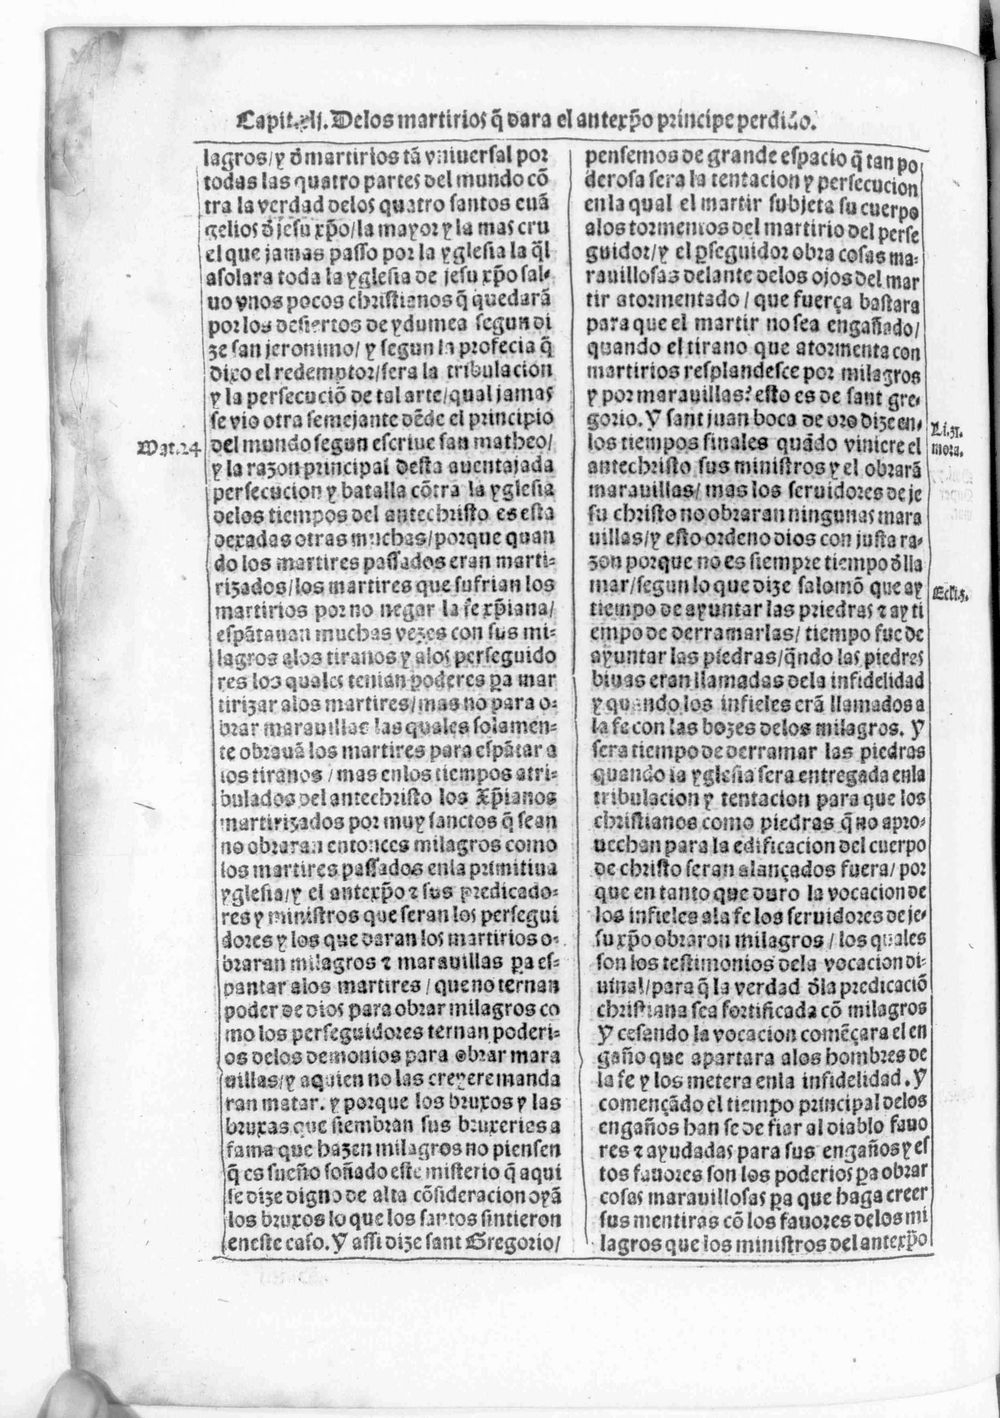 Capit.xlj. Delos martirios q̃ dara el antexp̃o principe perdido.
lagros/y d̃ martirios tã vniuersal por
todas las quatro partes del mundo cõ
tra la verdad delos quatro santos euã
gelios d̃ jesu xp̃o/la mayor y la mas cru
el que jamas passo por la yglesia la q̃l
asolara toda la yglesia de jesu xp̃o sal-
uo vnos pocos christianos q̃ quedarã
por los desiertos de ydumea segun di
ze san jeronimo/ y segun la profecia q̃
dixo el redemptor/sera la tribulacion
y la persecuciõ de tal arte/qual jamas
se vio otra semejante dẽde el principio
Mat.24
del mundo segun escriue san matheo/
y la razon principal desta auentajada
persecucion y batalla cõtra la yglesia
delos tiempos del antechristo es esta
dexadas otras muchas/porque quan
do los martires passados eran marti-
rizados/los martires que sufrian los
martirios por no negar la fe xp̃iana/
espãtauan muchas vezes con sus mi-
lagros alos tiranos y alos perseguido
res los quales tenian poderes p̃a mar
tirizar alos martires/mas no para o-
brar marauillas las quales solamen-
te obrauã los martires para espãtar a
los tiranos/mas enlos tiempos atri-
bulados del antechristo los xp̃ianos
martirizados por muy sanctos q̃ sean
no obraran entonces milagros como
los martires passados enla primitiua
yglesia/y el antexp̃o ⁊ sus predicado-
res y ministros que seran los persegui
dores y los que daran los martirios o-
braran milagros ⁊ marauillas p̃a es-
pantar alos martires/que no ternan
poder de dios para obrar milagros co
mo los perseguidores ternan poderi-
os delos demonios para obrar mara
uillas/y aquien no las creyere manda
ran matar. y porque los bruxos y las
bruxas que siembran sus bruxerias a
fama que hazen milagros no piensen
q̃ es sueño soñado este misterio q̃ aqui
se dize digno de alta cõsideracion oyã
los bruxos lo que los santos sintieron
eneste caso. Y assi dize sant Gregorio/
pensemos de grande espacio q̃ tan po
derosa sera la tentacion y persecucion
enla qual el martir subjeta su cuerpo
alos tormentos del martirio del perse
guidor/y el p̃seguidor obra cosas ma-
rauillosas delante delos ojos del mar
tir atormentado/que fuerça bastara
para que el martir no sea engañado/
quando el tirano que atormenta con
martirios resplandesce por milagros
y por marauillas? esto es de sant gre-
gorio. Y sant juan boca de oro dize en-
Li.31.
mora.
los tiempos finales quãdo viniere el
antechristo sus ministros y el obrarã
marauillas/mas los seruidores de je
su christo no obraran ningunas mara
uillas/y esto ordeno dios con justa ra-
zon porque no es siempre tiempo d̃ lla
mar/segun lo que dize salomõ que ay
Eccls.3.
tiempo de ayuntar las priedras ⁊ ay ti
empo de derramarlas/tiempo fue de
ayuntar las piedras/q̃ndo las piedres
biuas eran llamadas dela infidelidad
y quando los infieles erã llamados a
la fe con las bozes delos milagros. Y
sera tiempo de derramar las piedras
quando la yglesia sera entregada enla
tribulacion y tentacion para que los
christianos como piedras q̃ no apro-
uechan para la edificacion del cuerpo
de christo seran alançados fuera/por
que en tanto que duro la vocacion de
los infieles ala fe los seruidores de je-
su xp̃o obraron milagros/los quales
son los testimonios dela vocacion di-
uinal/para q̃ la verdad d̃la predicaciõ
christiana sea fortificada cõ milagros
Y cesando la vocacion comẽçara el en
gaño que apartara alos hombres de
la fe y los metera enla infidelidad. Y
començãdo el tiempo principal delos
engaños han se de fiar al diablo fauo
res ⁊ ayudadas para sus engaños y es
tos fauores son los poderios p̃a obrar
cosas marauillosas p̃a que haga creer
sus mentiras cõ los fauores delos mi
lagros que los ministros del antexp̃o